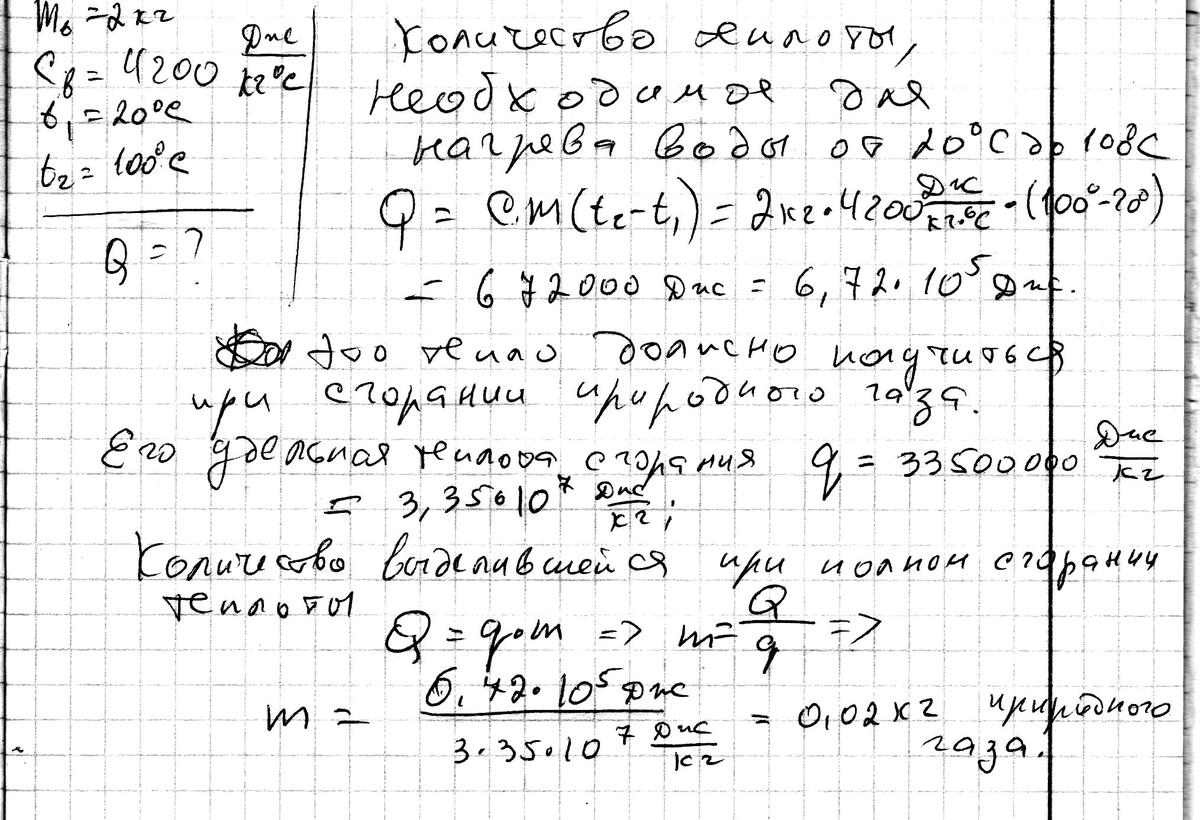 m₀ = 2 кг
Cв = 4200 Дж/кг°C
t₁ = 20°C
t₂ = 100°C
Q = ?
Количество теплоты,
необходимое для
нагрева воды от 20°C до 100°C
Q = C·m(t₂-t₁) = 2кг·4200 Дж/кг·°C·(100°-20°)
= 672000 Дж = 6,72·10⁵ Дж.
это тепло должно получиться
при сгорании природного газа.
Его удельная теплота сгорания q = 33500000 Дж/кг
= 3,35·10⁷ Дж/кг;
Количество выделившейся при полном сгорании
теплоты
Q = q·m => m = Q/q =>
m = 6,72·10⁵ Дж / 3.35·10⁷ Дж/кг = 0,02 кг природного
газа.